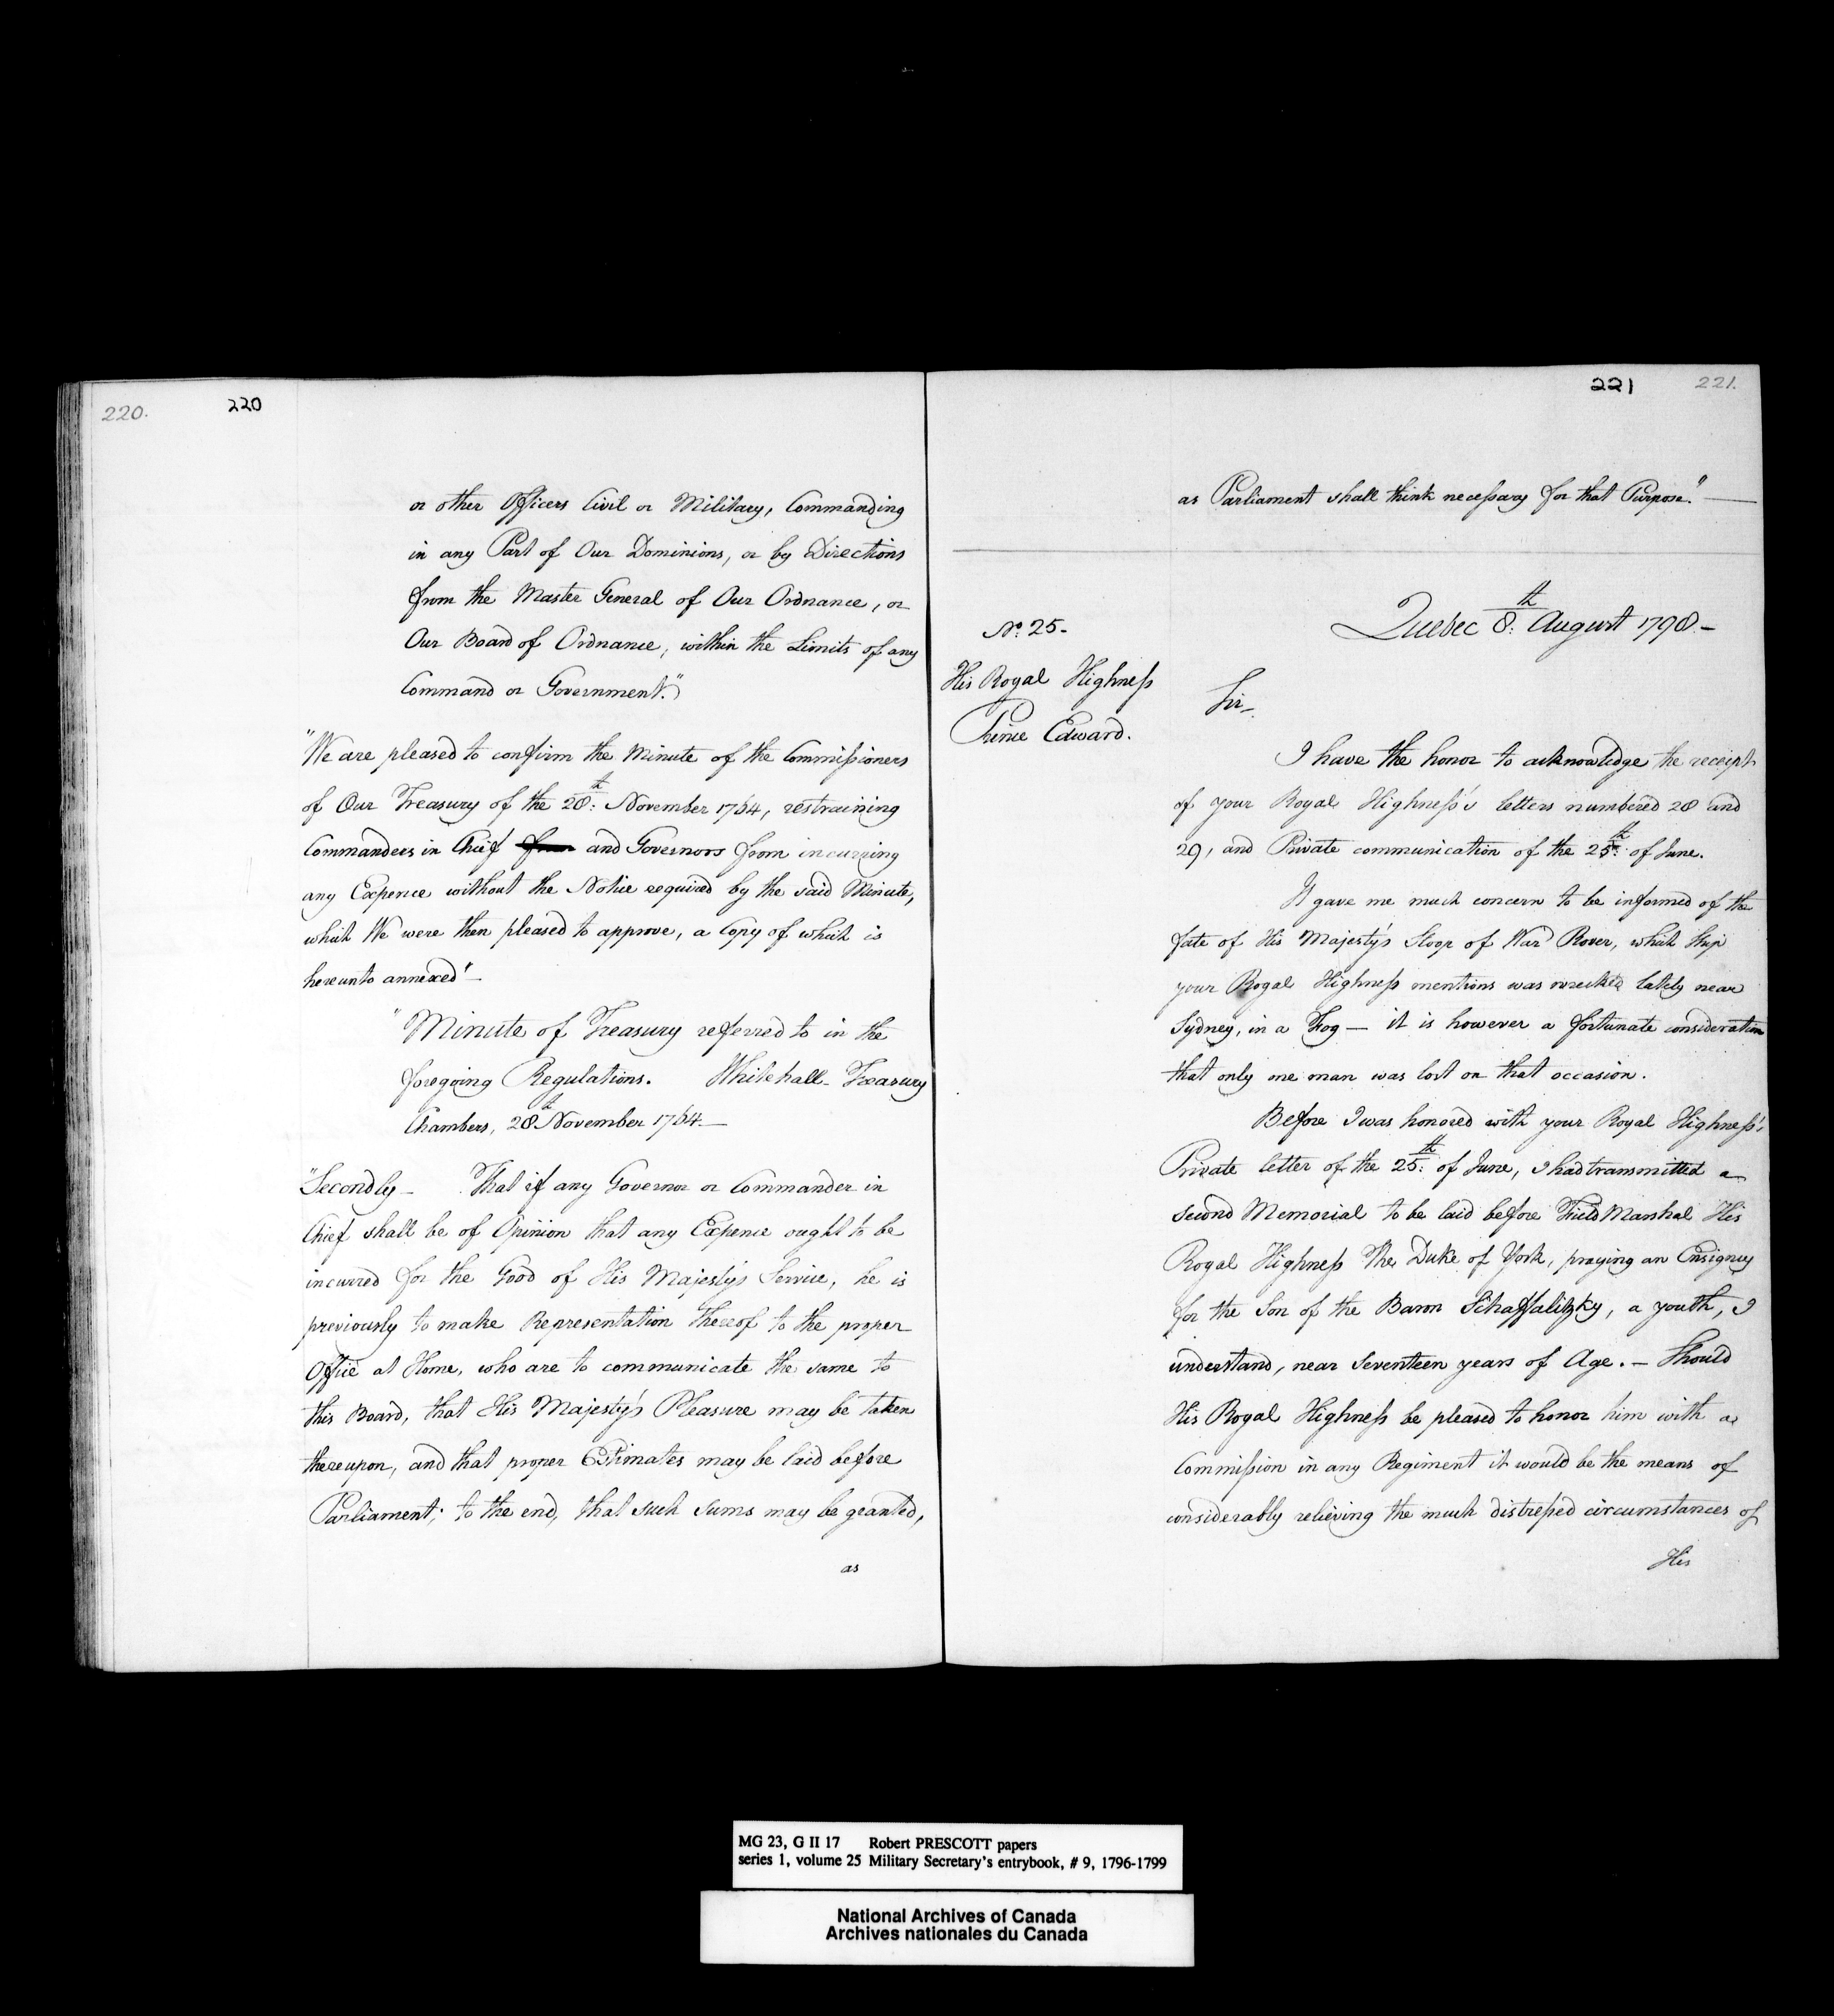 220.
220
or other Officers Civil or Military, Commanding
in any Part of Our Dominions, or by Directions
from the Master General of Our Ordnance, or
Our Board of Ordnance, within the Limits of any
Command or Government.")
"We are pleased to confirm the Minute of the Commissioners
of Our Treasury of the 28th: November 1764, restraining
Commanders in Chief from and Governors from incurring
any Expence without the Notice required by the said Minute,
which We were then pleased to approve, a Copy of which is
hereunto annexed"—
"Minute of Treasury referred to in the
foregoing Regulations. Whitehall - Treasury
Chambers, 28th November 1764.—
"Secondly — That if any Governor or Commander in
Chief shall be of Opinion that any Expence ought to be
incurred for the Good of His Majesty's Service, he is
previously to make Representation thereof to the proper
Office at Home, who are to communicate the same to
this Board, that His Majesty's Pleasure may be taken
thereupon, and that proper Estimates may be laid before
Parliament; to the end, that such Sums may be granted,
as
221
221.
as Parliament shall think necessary for that Purpose."—
Quebec 8th: August 1798.—
No. 25.
His Royal Highness
Prince Edward.
Sir—
I have the honor to acknowledge the receipt
of your Royal Highness's letters numbered 28 and
29, and Private communication of the 25th: of June.
It gave me much concern to be informed of the
fate of His Majesty's Sloop of War Rover, which Ship
your Royal Highness mentions was wrecked lately near
Sydney, in a Fog — it is however a fortunate consideration
that only one man was lost on that occasion.
Before I was honored with your Royal Highness's
Private letter of the 25th: of June, I had transmitted a
second Memorial to be laid before Field Marshal His
Royal Highness The Duke of York, praying an Ensigncy
for the Son of the Baron Schaffalitzky, a youth, I
understand, near Seventeen years of Age. — Should
His Royal Highness be pleased to honor him with a
Commission in any Regiment it would be the means of
considerably relieving the much distressed circumstances of
His
MG 23, G II 17 Robert PRESCOTT papers
series 1, volume 25 Military Secretary's entrybook, # 9, 1796-1799
National Archives of Canada
Archives nationales du Canada